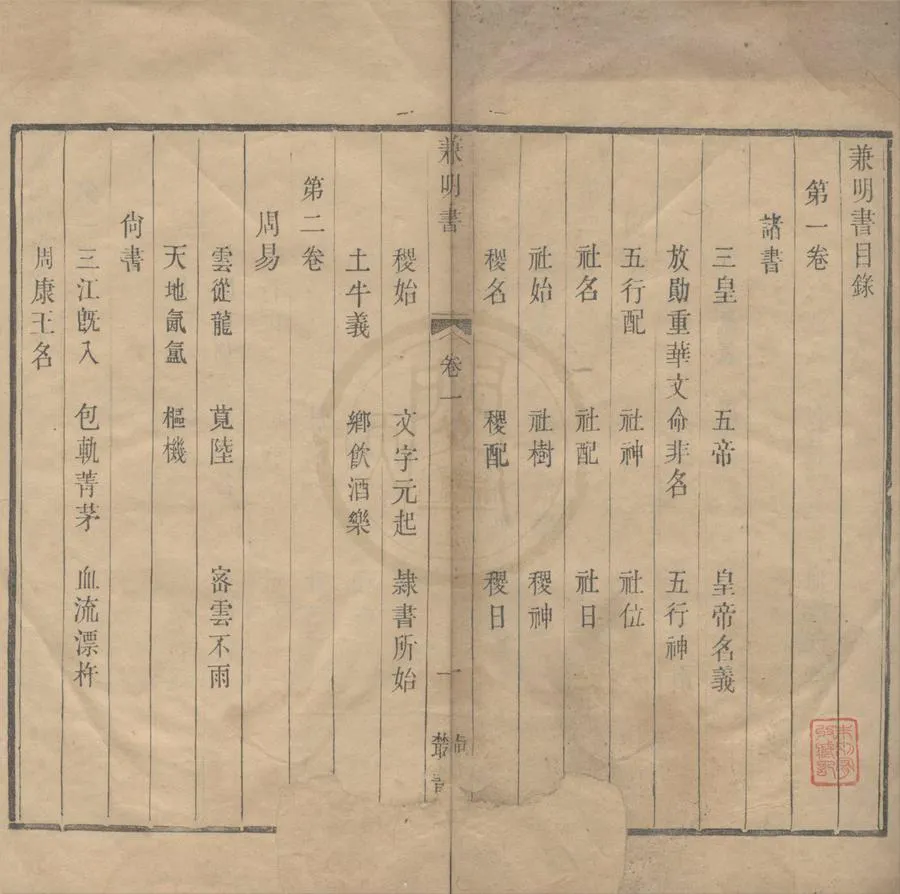 兼明書目錄
第一卷
諸書
三皇 五帝 皇帝名義
放勛重華文命非名 五行神
五行配 社神 社位
社名 社配 社日
社始 社樹 稷神
稷名 稷配 稷日
兼明書 卷一 一 叢書
稷始 文字元起 隷書所始
土牛義 鄉飲酒樂
第二卷
周易
雲從龍 莧陸 密雲不雨
天地氤氳 樞機
尙書
三江旣入 包軌菁茅 血流漂杵
周康王名